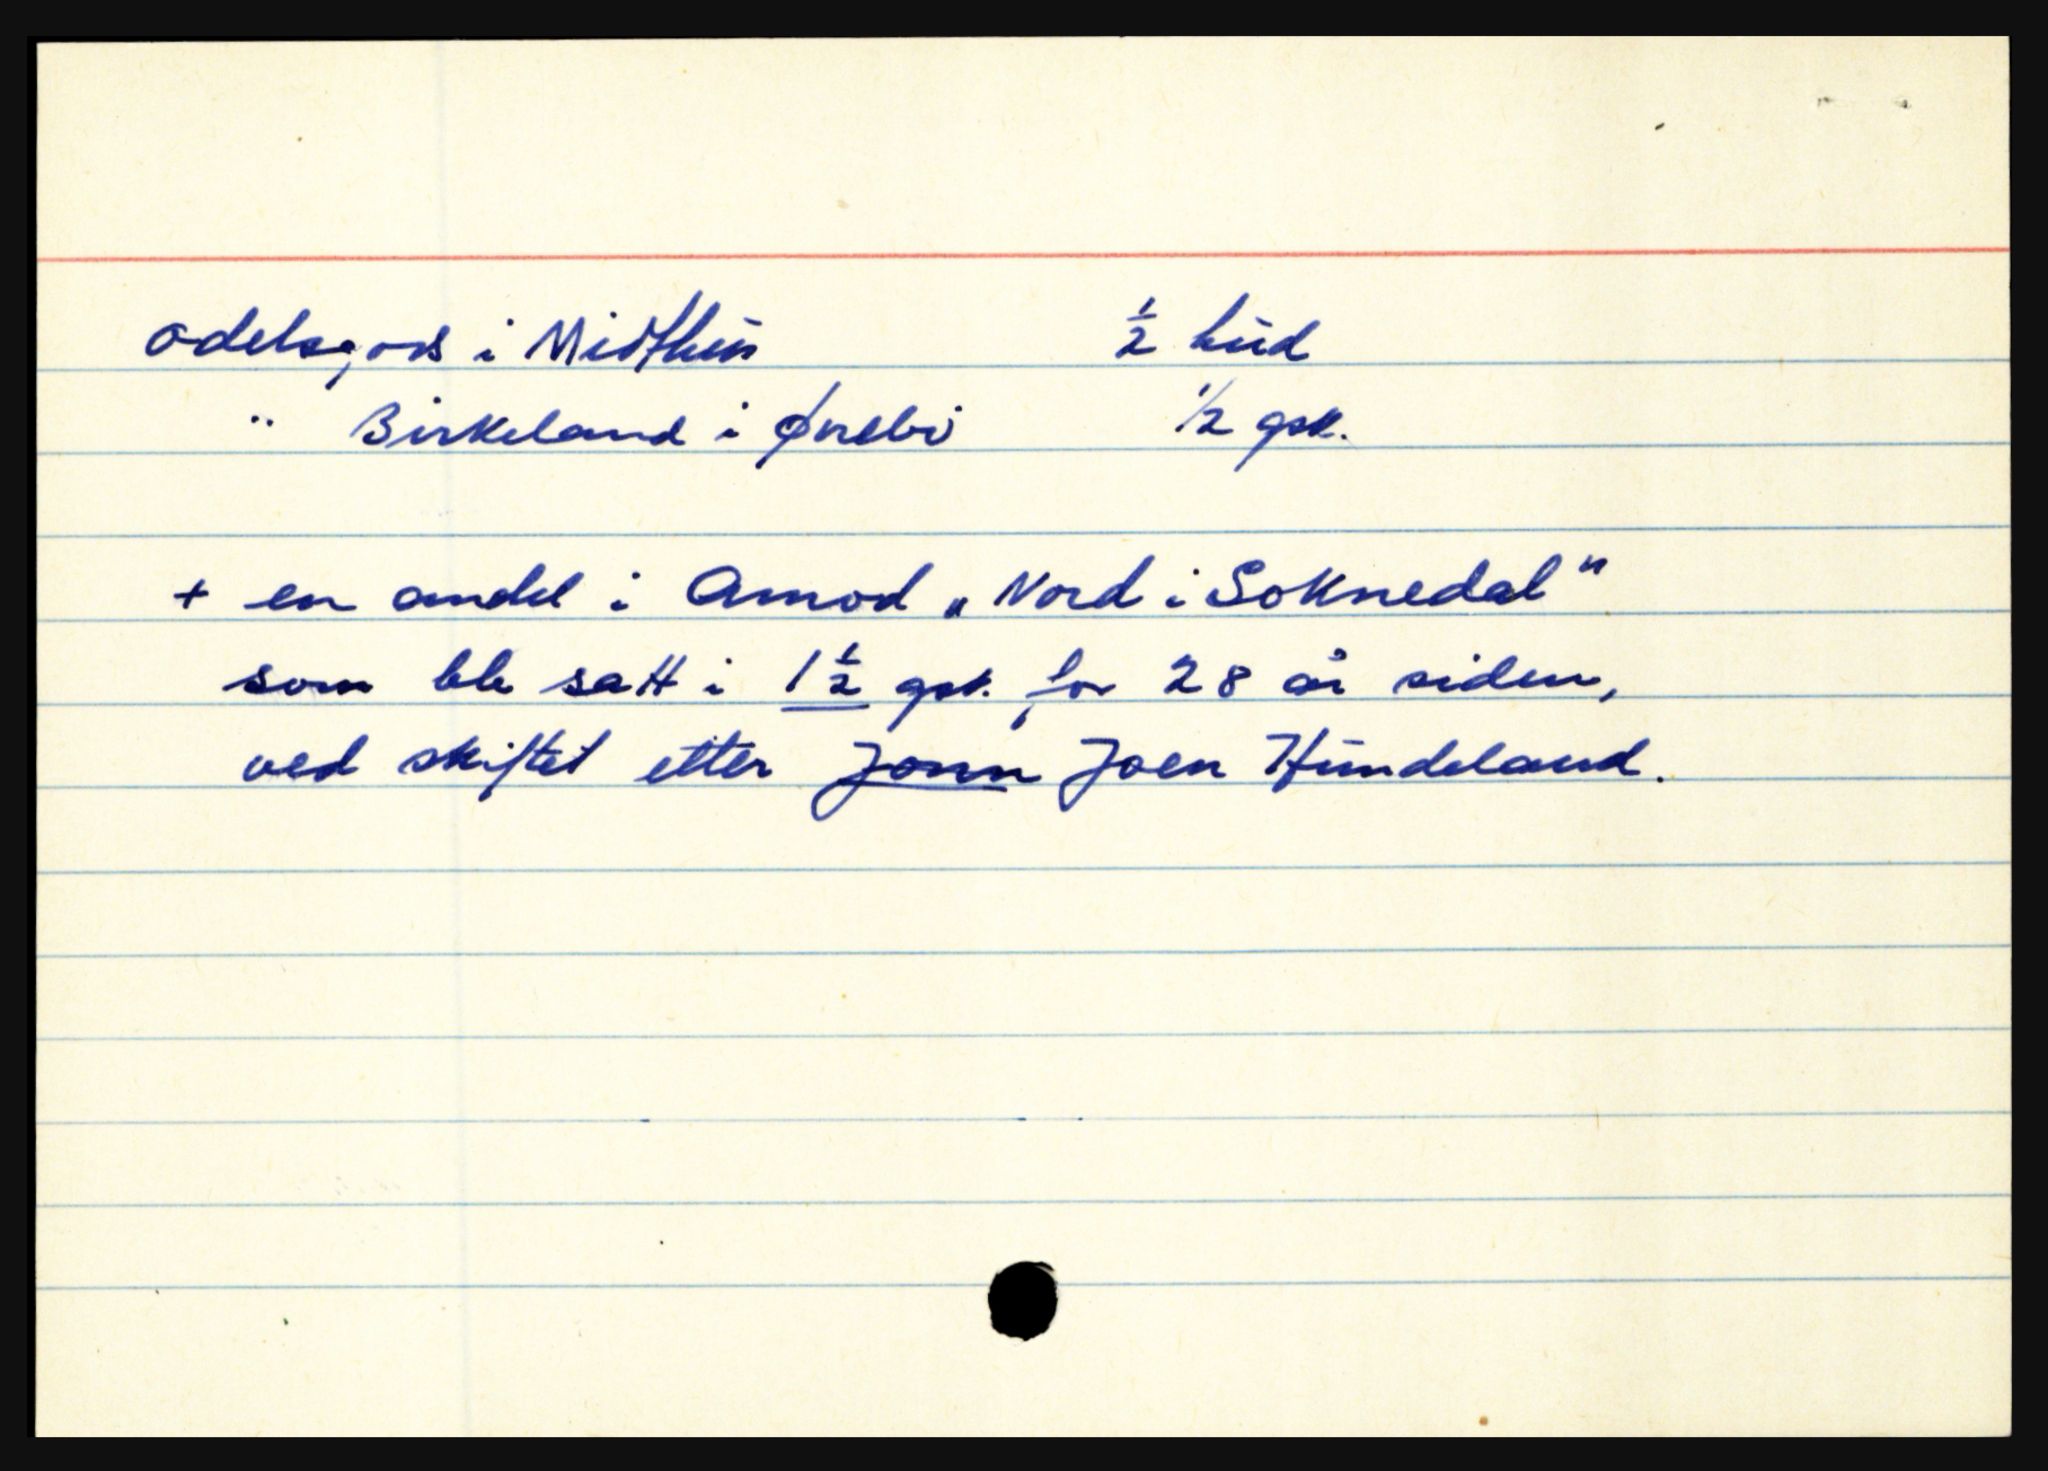 odelsgods i Midthus ½ hud
" Birkeland i Ørebø ½ gsk.
+ en andel i Amod „Nord i Soknedal"
som ble satt i 1½ gsk. for 28 år siden,
ved skiftet etter Jonn Joen Hundeland.